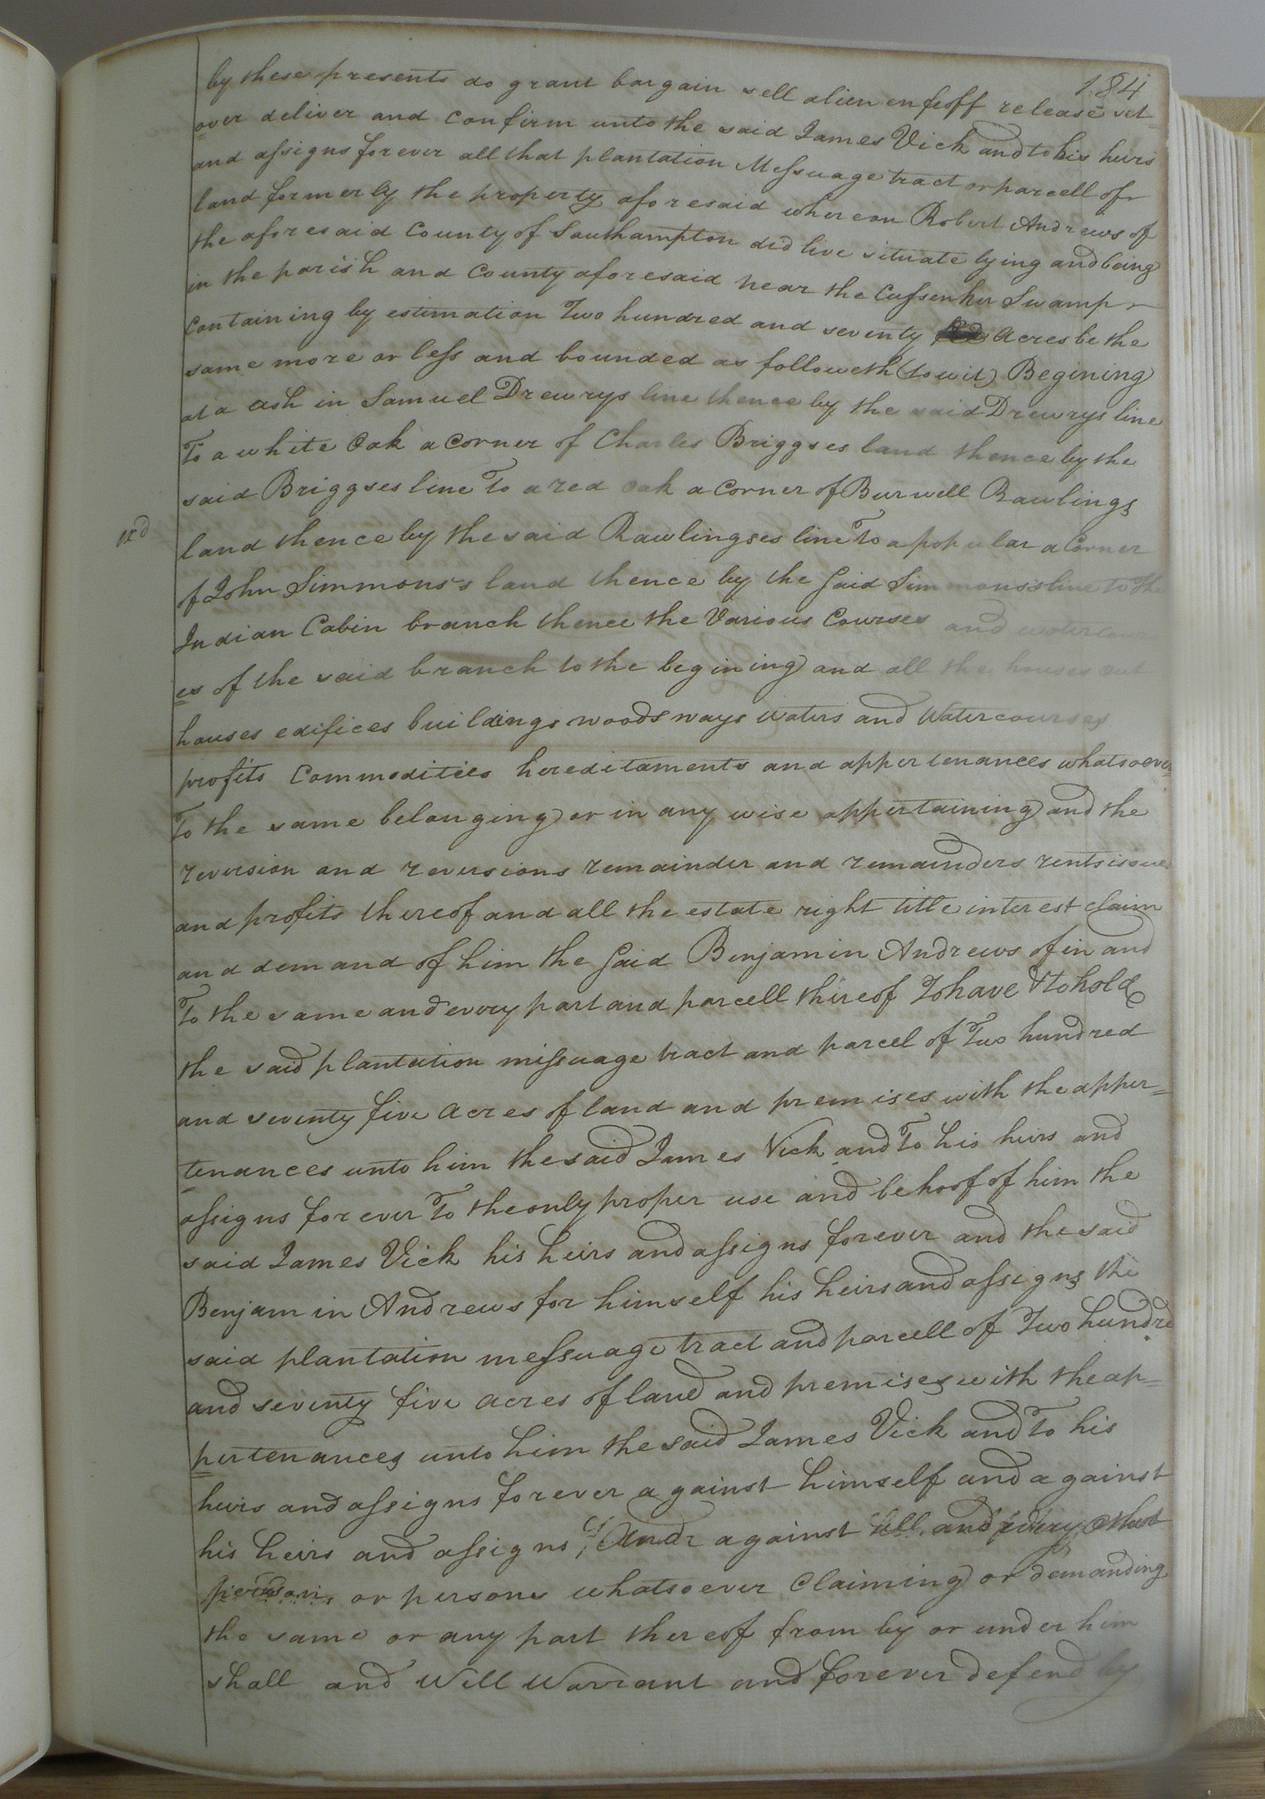 184
by these presents do grant bargain sell alien enfeoff release set
over deliver and confirm unto the said James Vick and to his heirs
and assigns forever all that plantation Messuage tract or parcell of
land formerly the property aforesaid whereon Robert Andrews of
the aforesaid County of Southampton did live situate lying and being
in the parish and County aforesaid near the Swamp
Containing by estimation Two hundred and seventy Acres be the
same more or less and bounded as followeth (to wit) Begining
at a ash in Samuel Drewrys line thence by the said Drewrys line
To a white Oak a Corner of Charles Briggses land thence by the
said Briggses line To a red oak a Corner of Burwell Rawlings
land thence by the said Rawlingses line To a popular a Corner
of John Simmons's land thence by the Said Simmons's line to the
Indian Cabin branch thence the Various Courses and
es of the said branch to the begining and all the houses out
houses edifices buildings woods ways waters and Watercourses
profits Commodities hereditaments and appertenances whatsoever
To the same belonging or in any wise appertaining and the
reversion and reversions remainder and remainders rents issues
and profits thereof and all the estate right title interest claim
and demand of him the Said Benjamin Andrews of in and
To the same and every part and parcell thereof To have & to hold
the said plantation missuage tract and parcel of Two hundred
and seventy five Acres of land and premises with the apper=
tenances unto him the said James Vick and To his heirs and
assigns forever To the only proper use and behoof of him the
said James Vick his heirs and assigns forever and the said
Benjamin Andrews for himself his heirs and assigns the
said plantation messuage tract and parcell of Two hundred
and seventy five acres of land and premises with the ap=
pertenances unto him the said James Vick and To his
heirs and assigns forever against himself and against
his heirs and assigns, & against all and every other
person or persons whatsoever Claiming or demanding
the same or any part thereof from by or under him
shall and Will Warrant and forever defend by